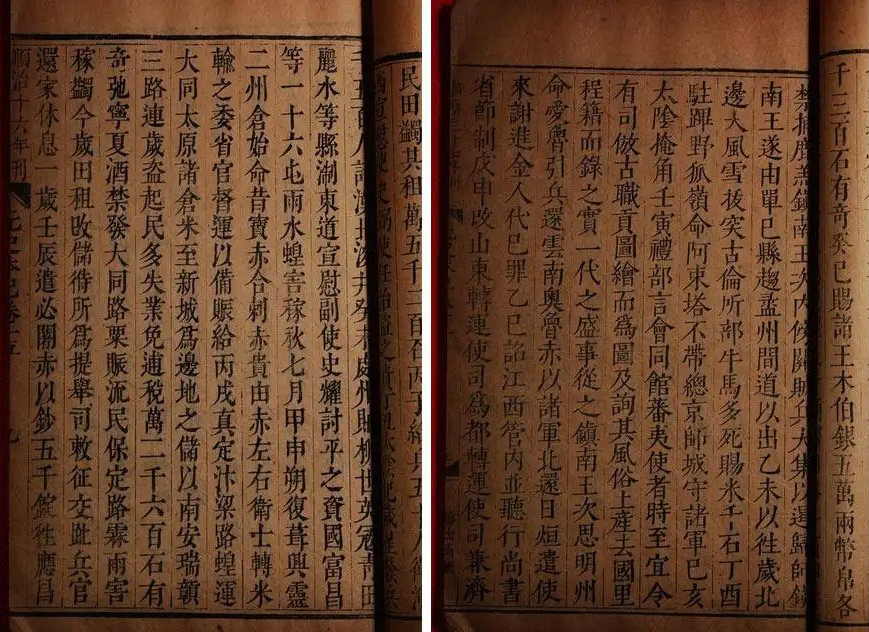 民田蠲其租萬五千二百石丙子給兵五十八
癸未處州賊柳世英寇青田
麗水等縣浙東道宣慰副使史耀討平之資國富昌
等一十六屯雨水蝗害稼秋七月甲申朔復葺興靈
二州倉始命昔寶赤合剌赤貴由赤左右衛士轉米
輸之委省官督運以備賑給丙戌真定汴梁路蝗運
大同太原諸倉米至新城爲邊地之儲以南安瑞贛
三路連歲盗起民多失業免逋稅萬二千六百石有
奇弛寧夏酒禁發大同路粟賑流民保定路霖雨害
稼蠲今歲田租改儲偫所爲提舉司敕征交趾兵官
還家休息一歲壬辰遣必闍赤以鈔五千錠徃應昌
順治十六年刊 元史本紀卷十五 九
千三百石有奇癸巳賜諸王木伯銀五萬兩幣帛各
禁捕鹿羔鎮南王次内傍關賊兵大集以遏歸師鎮
南王遂由單巳縣趨盝州間道以出乙未以徃歲北
邊大風雪拔突古倫所部牛馬多死賜米千石丁酉
駐蹕野狐嶺命阿束塔不帶總京師城守諸軍巳亥
太陰掩角壬寅禮部言會同館蕃夷使者時至宜令
有司倣古職貢圖繪而爲圖及詢其風俗土産去國里
程籍而錄之實一代之盛事從之鎮南王次思明州
命愛魯引兵還雲南奧魯赤以諸軍北還日烜遣使
來謝進金人代巳罪乙巳詔江西管内並聽行尚書
省節制戊申改山東轉運使司爲都轉運使司兼濟